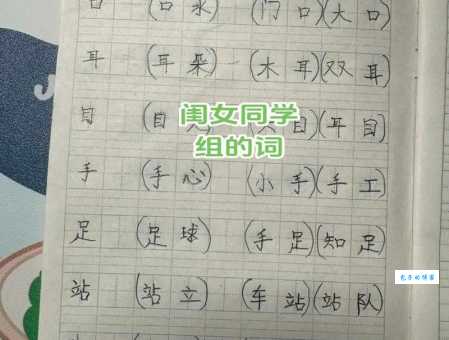 口 (口水) (门口)(大口)
耳 (耳朵) (木耳)(双耳)
目 (目 目)(耳目)
闺女同学
组的词
手 (手心) (小手)(手工)
足 (足球) (手足)(知足)
站 (站立) (车站)(站队)